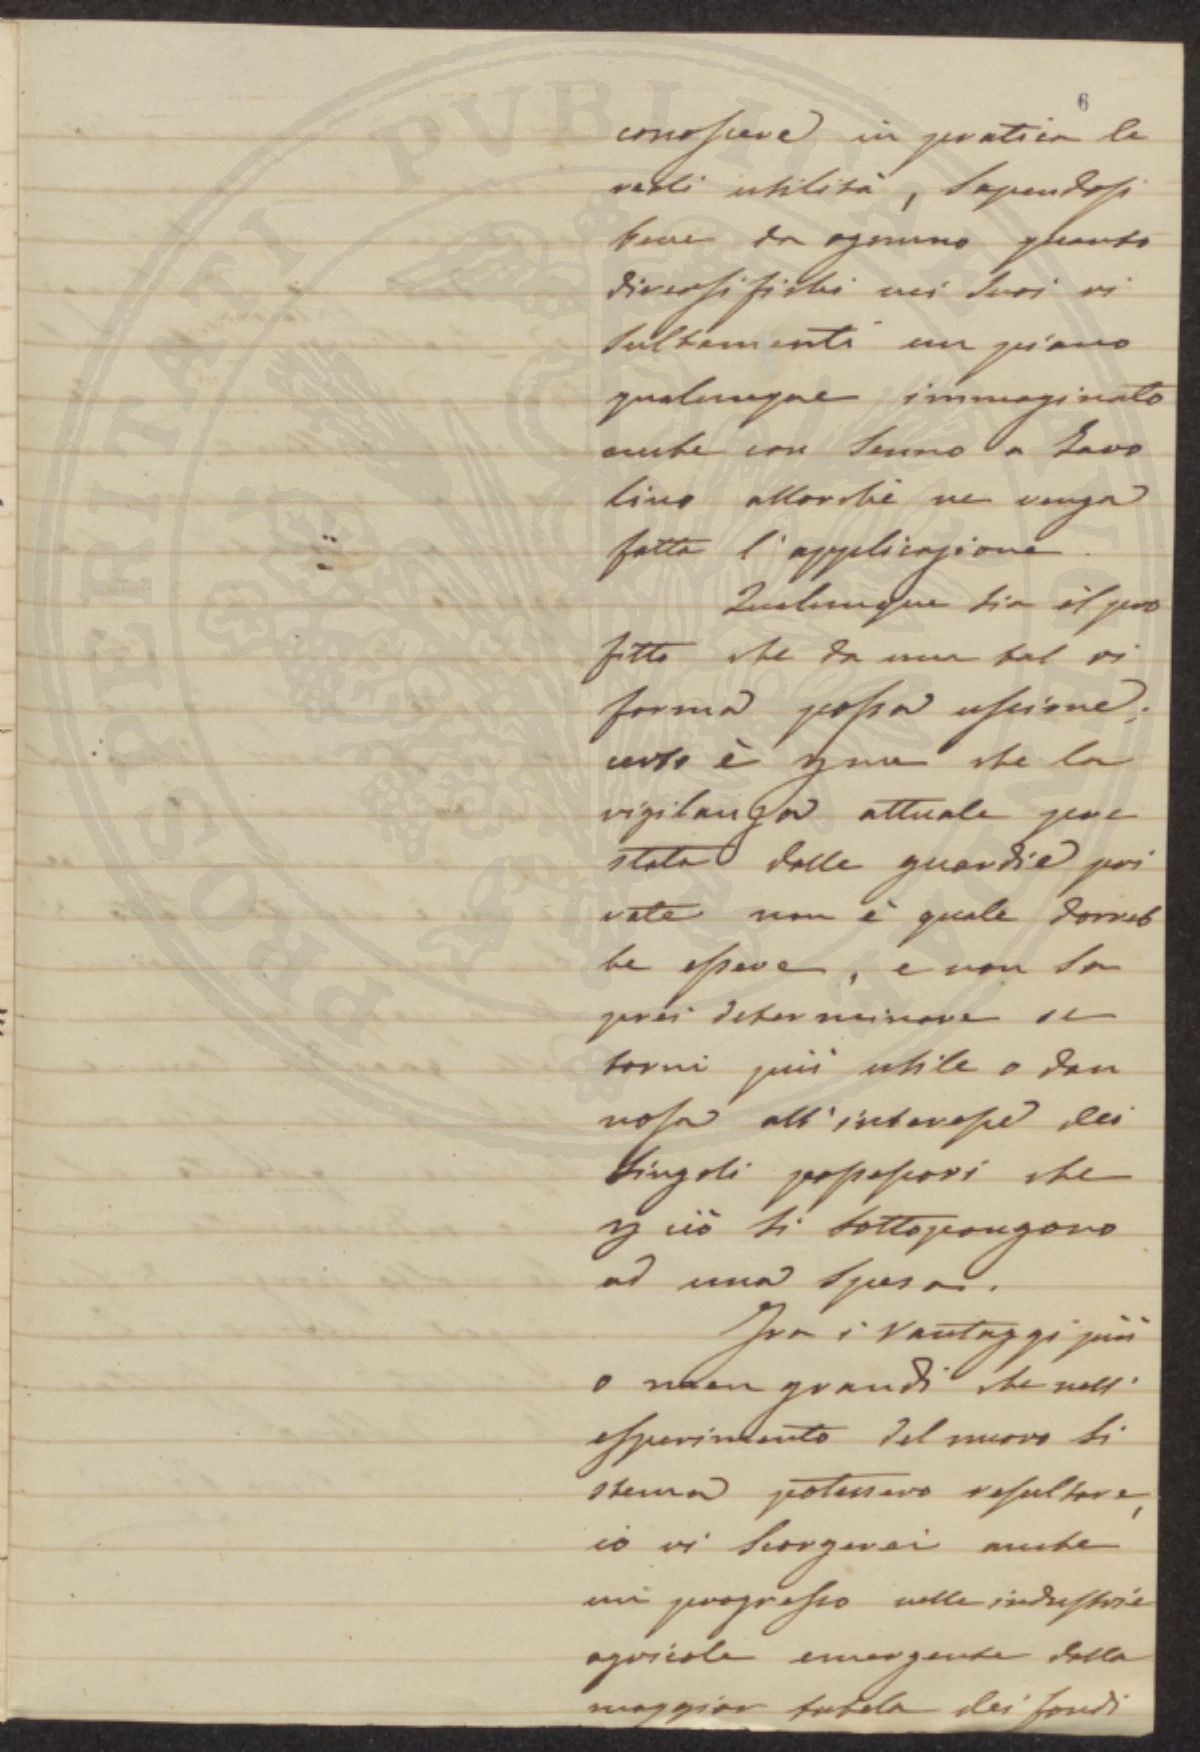 PROSPERITATI PVBLICAE AVGENDAE
6
conoscere in pratica le
reali utilità, sapendosi
bene da ognuno quanto
diversifichi nei suoi ri
sultamenti un piano
qualunque immaginato
anche con senno a tavo
lino allorchè ne venga
fatta l'applicazione.
Qualunque sia il pro
fitto che da una tal ri
forma possa uscirne;
certo è che la
vigilanza attuale pre
stata dalle guardie pri
vate non è quale dovreb
be essere, e non sa
prei determinare se
torni più utile o dan
nosa all'interesse dei
singoli possessori che
ciò si sottopongono
ad una spesa.
Fra i vantaggi più
o men grandi che nell'
esperimento del nuovo si
stema potessero resultare,
io vi scorgerei anche
un progresso nelle industrie
agricole emergente dalla
maggior tutela dei fondi